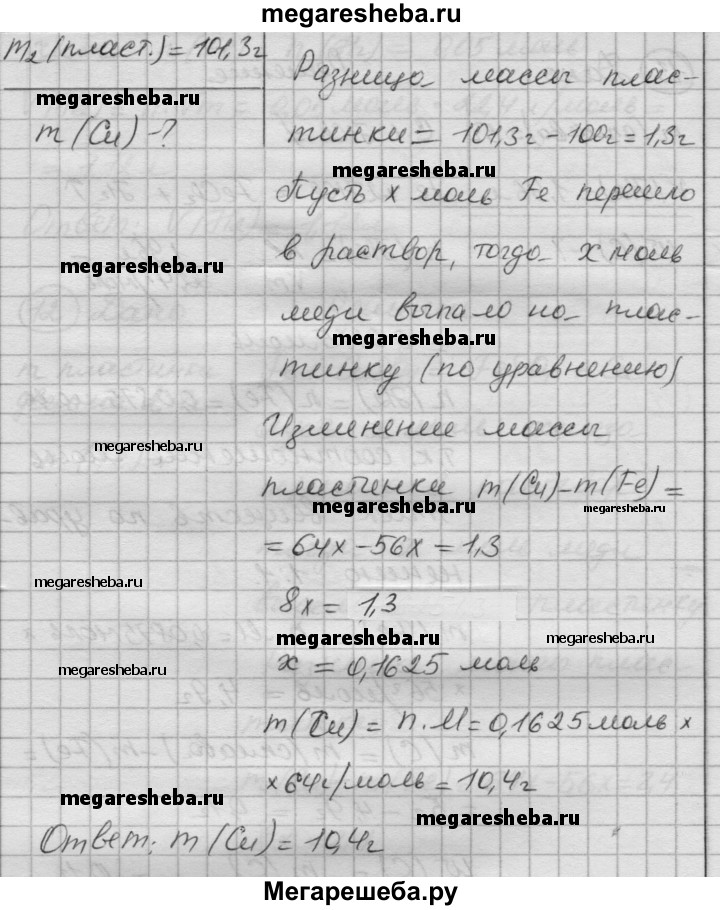 megaresheba.ru
m₂ (пласт.) = 101,3г
Разница массы плас-
megaresheba.ru
m (Cu) -?
тинки = 101,3г - 100г = 1,3г
megaresheba.ru
Пусть х моль Fe перешло
в раствор, тогда х моль
megaresheba.ru
меди выпало на плас-
megaresheba.ru
тинку (по уравнению)
Изменение массы
megaresheba.ru
пластинки m(Cu)-m(Fe) =
megaresheba.ru
megaresheba.ru
= 64х - 56х = 1,3
megaresheba.ru
8х = 1,3
megaresheba.ru
megaresheba.ru
megaresheba.ru
х = 0,1625 моль
m(Cu) = n.M = 0,1625 моль х
х 64г/моль = 10,4г
megaresheba.ru
megaresheba.ru
Ответ: m (Cu) = 10,4г
Мегарешеба.ру